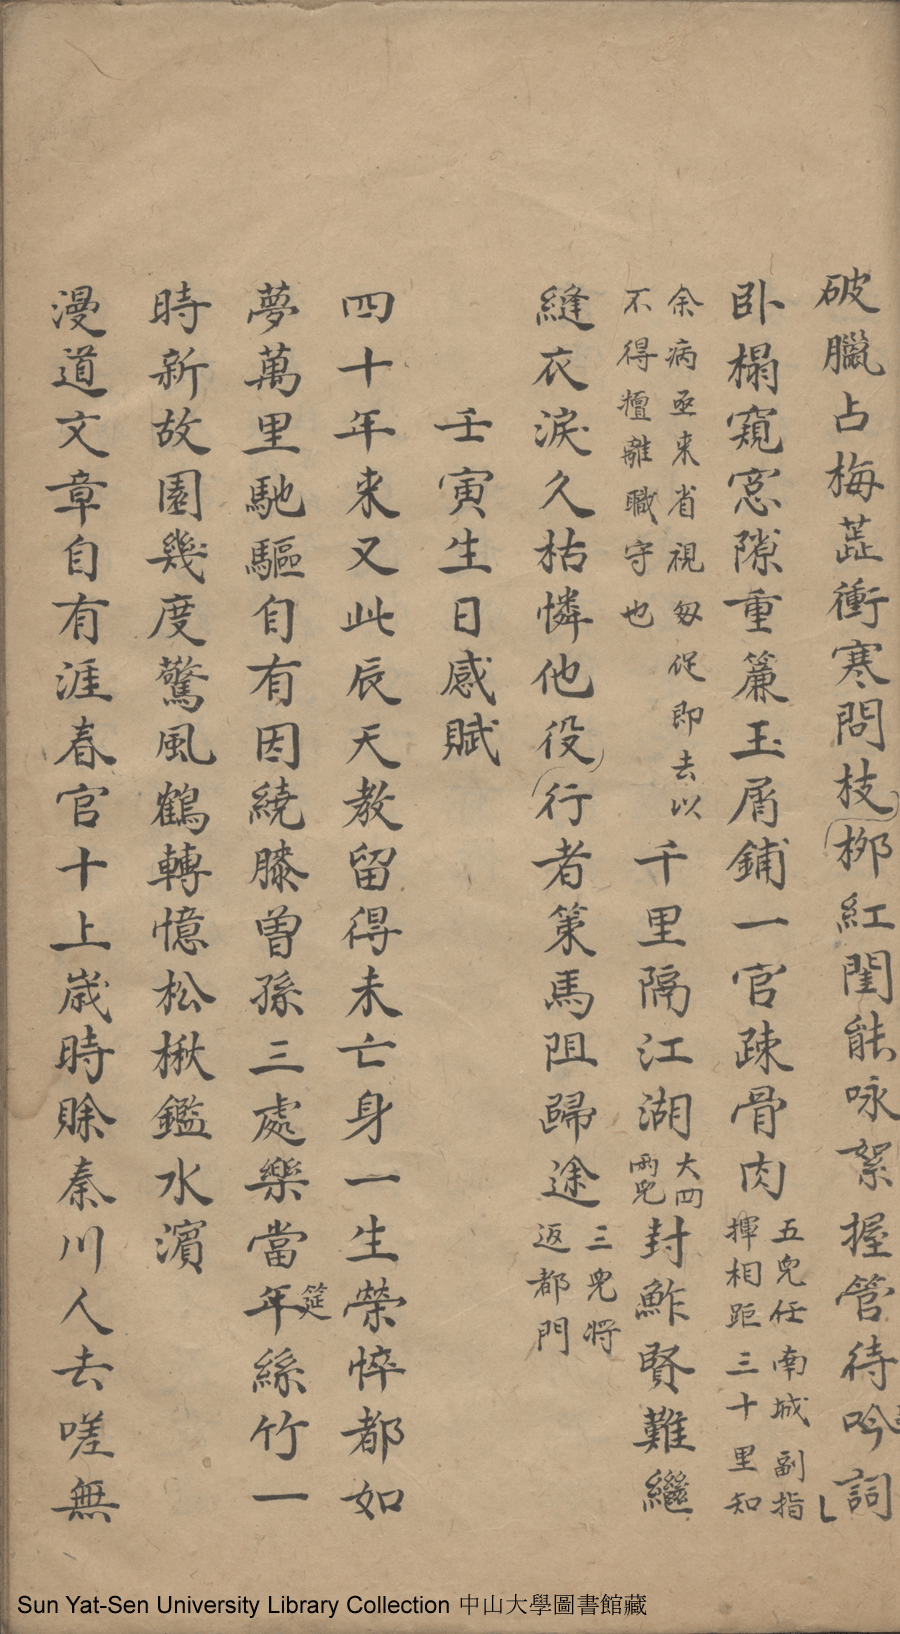 破臘占梅蕋衝寒問枝栁紅閨能咏絮握管待吟詞
卧榻窺窓隙重簾玉屑鋪一官疎骨肉
五兒任南城副指
揮相距三十里知
余病亟来省視匆促即去以
不得擅離職守也
千里隔江湖
大四
兩兒
封鮓賢難繼
縫衣淚久枯憐他役行者策馬阻歸途
三兒将
返都門
壬寅生日感賦
四十年来又此辰天教留得未亡身一生榮悴都如
夢萬里馳驅自有因繞膝曾孫三處樂當年絲竹一
筵
時新故園幾度驚風鶴轉憶松楸鑑水濵
漫道文章自有涯春官十上嵗時賒秦川人去嗟無
Sun Yat-Sen University Library Collection 中山大學圖書館藏